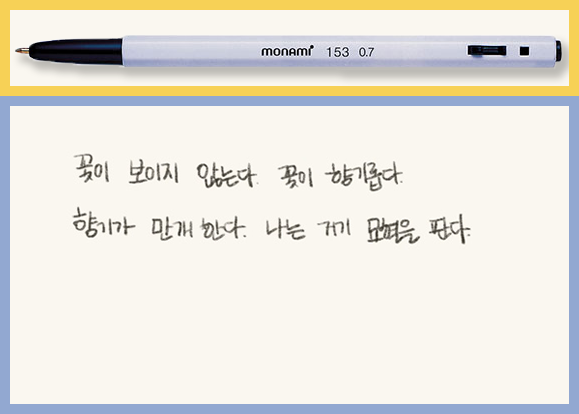 monami 153 0.7
꽃이 보이지 않는다. 꽃이 향기롭다.
향기가 만개한다. 나는 거기 묘혈을 판다.